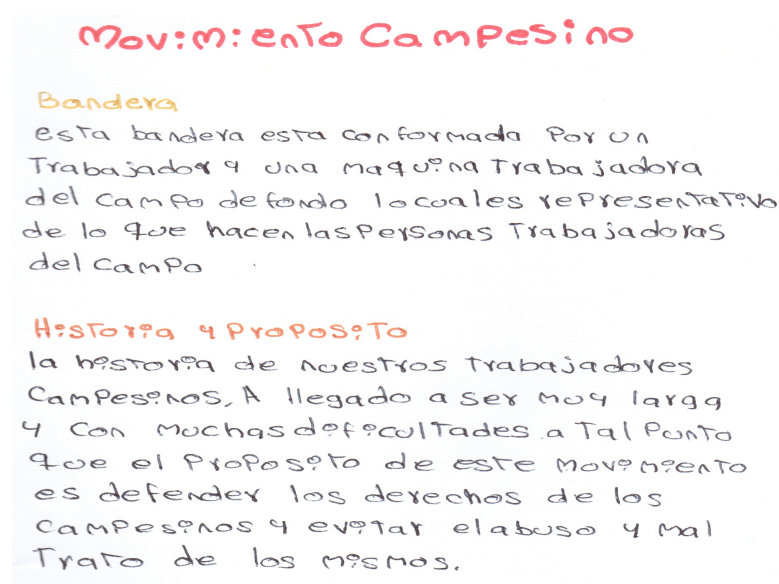 Movimiento Campesino
Bandera
esta bandera esta conformada Por un
Trabajador y una maquina Trabajadora
del campo de fondo lo cual es rePresentativo
de lo que hacen las Personas Trabajadoras
del campo
Historia y ProPosito
la historia de nuestros trabajadores
CamPesinos, A llegado a ser muy larga
y con muchas dificultades a Tal Punto
que el ProPosito de este movimiento
es defender los derechos de los
camPesinos y evitar el abuso y mal
Trato de los mismos.